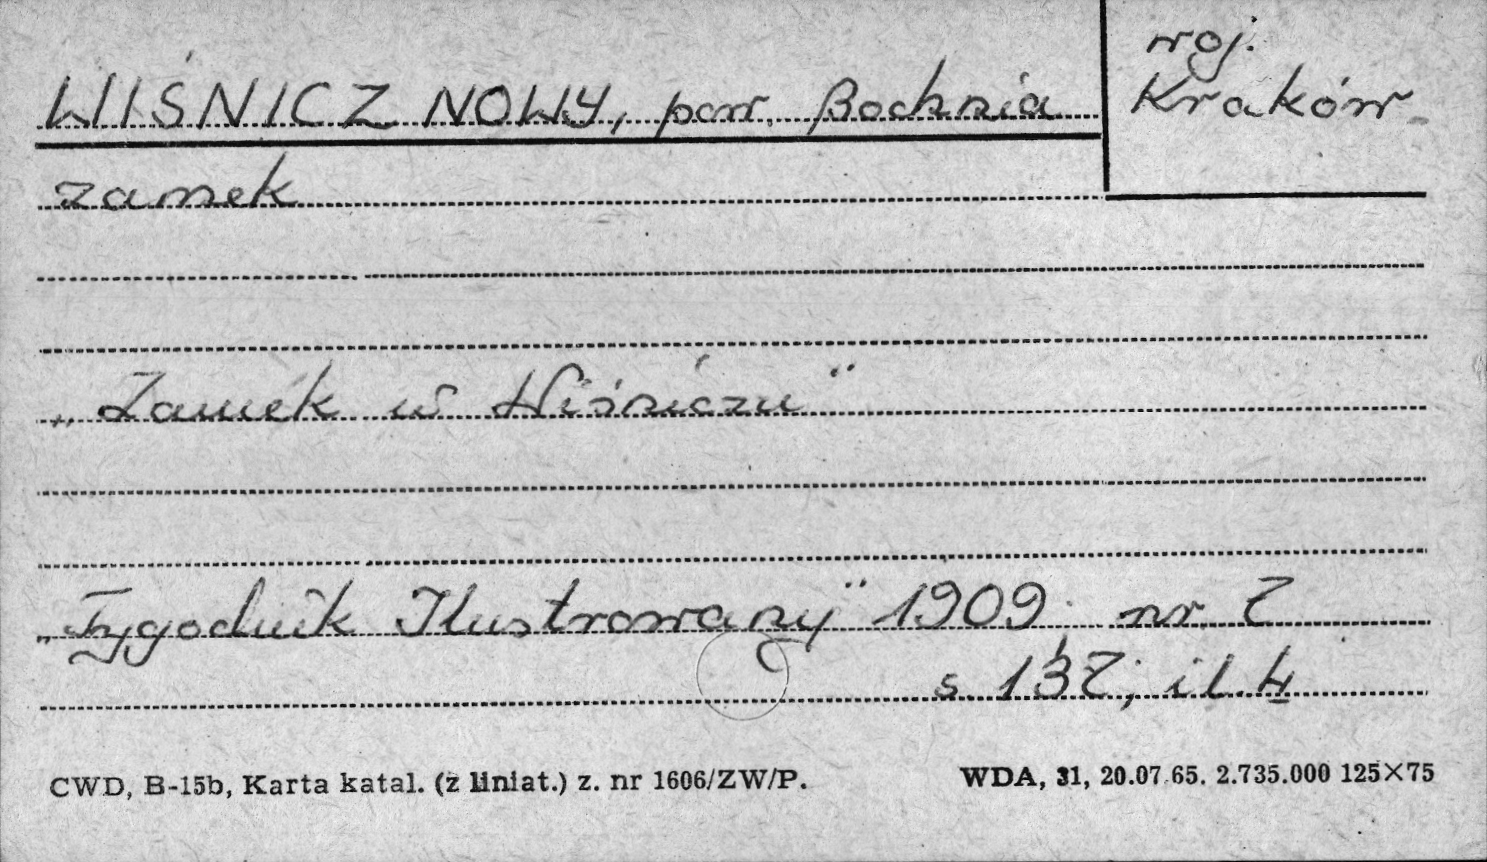 WIŚNICZ NOWY, pow. Bochnia
woj.
Kraków
zamek
„Zamek w Wiśniczu”
„Tygodnik Ilustrowany” 1909 nr 7
s. 137; il. 4
CWD, B-15b, Karta katal. (z liniat.) z. nr 1606/ZW/P.
WDA, 31, 20.07.65. 2.735.000 125×75